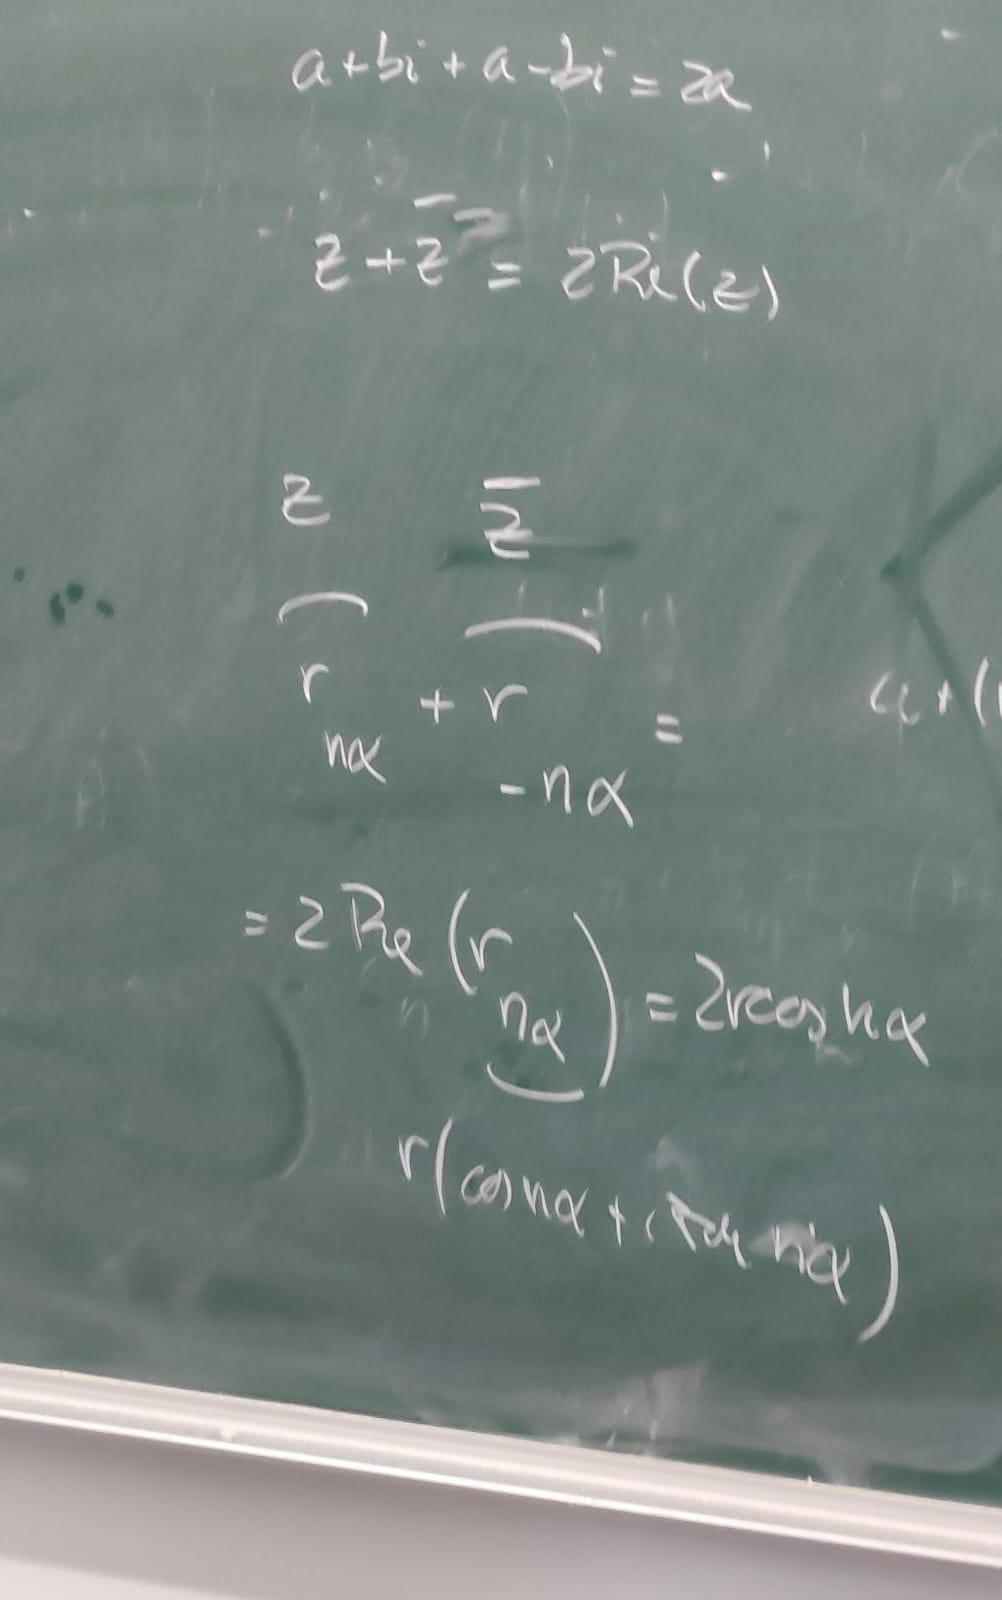 a+bi+a-bi=2a
z+z̅=2Re(z)
z z̅
r + r =
nα -nα
=2Re(r nα)=2rcosnα
r(cosnα+i nα)